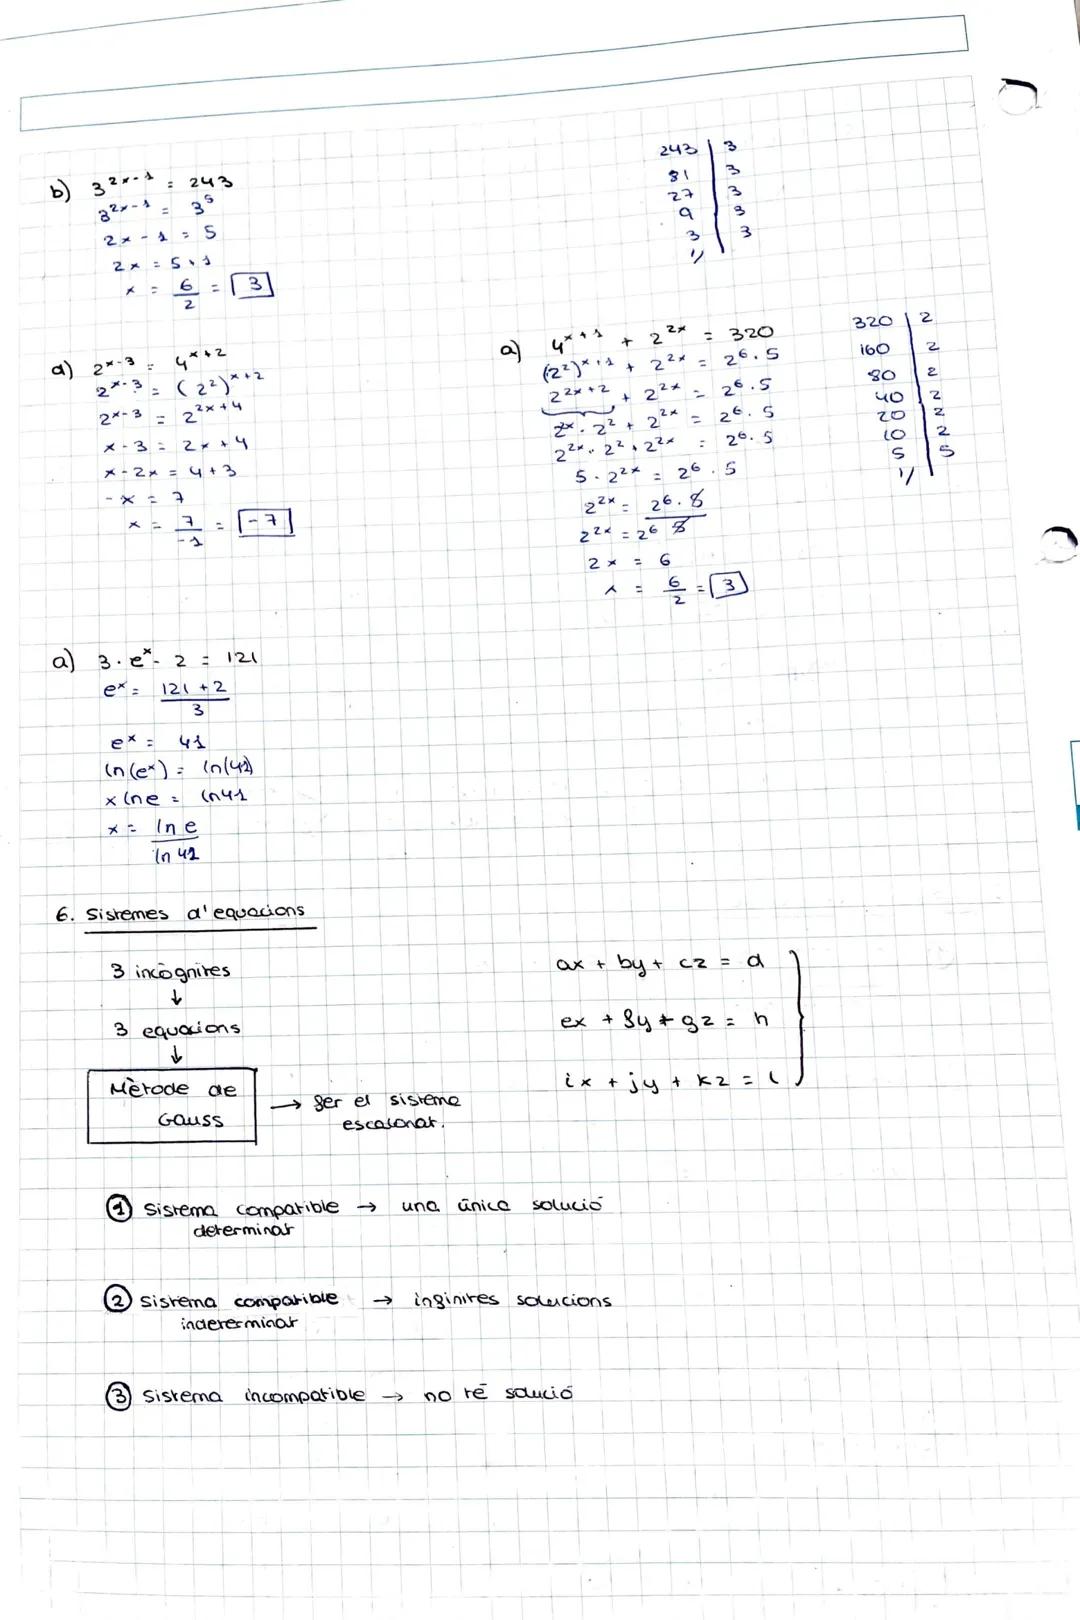 b) 3^(2x-1) = 243
3^(2x-1) = 3^5
2x - 1 = 5
2x = 5+1
x = 6/2 = 3
243 | 3
81 | 3
27 | 3
9 | 3
3 | 3
1//
d) 2^(x-3) = 4^(x+2)
2^(x-3) = (2^2)^(x+2)
2^(x-3) = 2^(2x+4)
x - 3 = 2x + 4
x - 2x = 4 + 3
-x = 7
x = 7/-1 = -7
a) 4^(x+1) + 2^(2x) = 320
(2^2)^(x+1) + 2^(2x) = 2^6 · 5
2^(2x+2) + 2^(2x) = 2^6 · 5
2^x · 2^2 + 2^(2x) = 2^6 · 5
2^(2x) · 2^2 + 2^(2x) = 2^6 · 5
5 · 2^(2x) = 2^6 · 5
2^(2x) = 2^6 · 5 / 5
2^(2x) = 2^6
2x = 6
x = 6/2 = 3
320 | 2
160 | 2
80 | 2
40 | 2
20 | 2
10 | 2
5 | 5
1/
a) 3 · e^x - 2 = 121
e^x = (121 + 2)/3
e^x = 41
ln(e^x) = ln(41)
x ln e = ln 41
x = ln e / ln 41
6. Sistemes d'equacions
3 incògnites
↓
3 equacions
↓
Mètode de
Gauss
→ fer el sistema
escalonat.
ax + by + cz = d
ex + fy + gz = h
ix + jy + kz = l
① Sistema compatible → una única solució
determinat
② Sistema compatible → infinites solucions
indeterminat
③ Sistema incompatible → no té solució